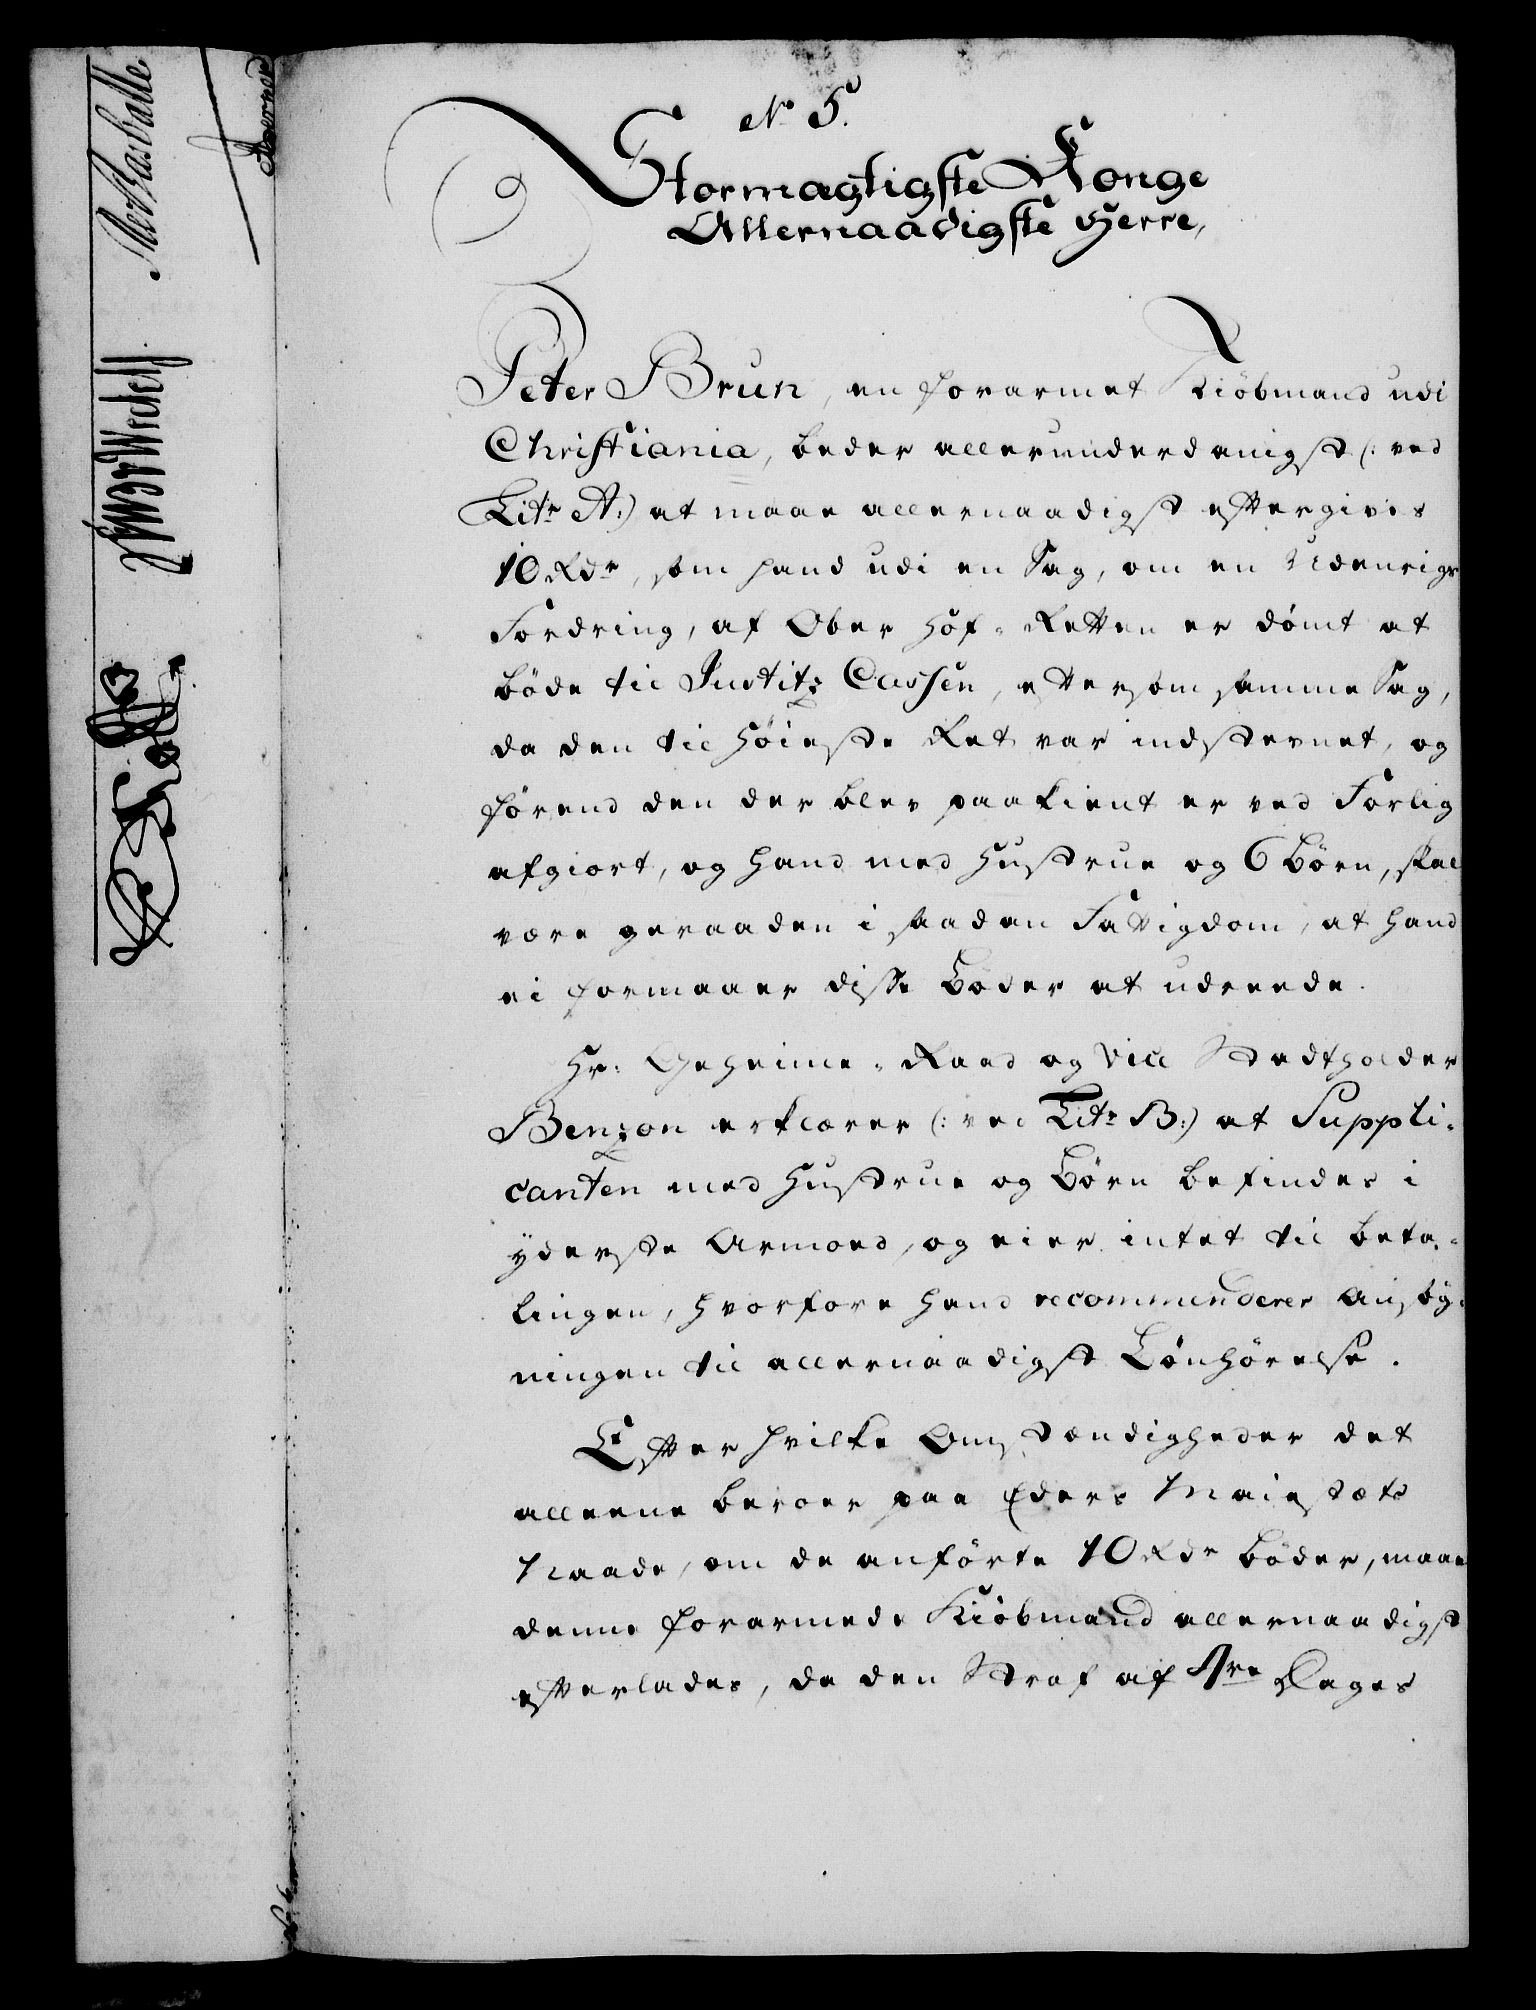 No 5.
Stormagtigste Konge
Allernaadigste Herre,
Peter Brun, en forarmet Kiöbmand udi
Christiania, beder allerunderdanigst (: ved
Litr A:) at maae allernaadigst eftergives
10 Rdr, som hand udi en Sag, om en Udenrigs
Fordring, af Ober Hof-Retten er dömt at
böde til Justitz Cassen, eftersom samme Sag,
da den til Höieste Ret var indstevnet, og
förend den der blev paakient er ved Forlig
afgiort, og hand med Hustrue og 6 Börn, skal
være geraaden i saadan Fattigdom, at hand
ei formaaer disse Böder at udreede.
Hr: Geheime-Raad og Vice Stadtholder
Benzon erklærer (: ved Litr B:) at Suppli-
canten med Hustrue og Börn befindes i
yderste Armoed, og eier intet til beta-
lingen, hvorfore hand recommenderer Ansög-
ningen til allernaadigst Bönhörelse.
Efter hvilke Omstændigheder det
alleene beroer paa Eders Maiestæts
Naade, om de anförte 10 Rdr böder, maae
denne forarmede Kiöbmand allernaadigst
efterlades, da den Straf af 4re Dages